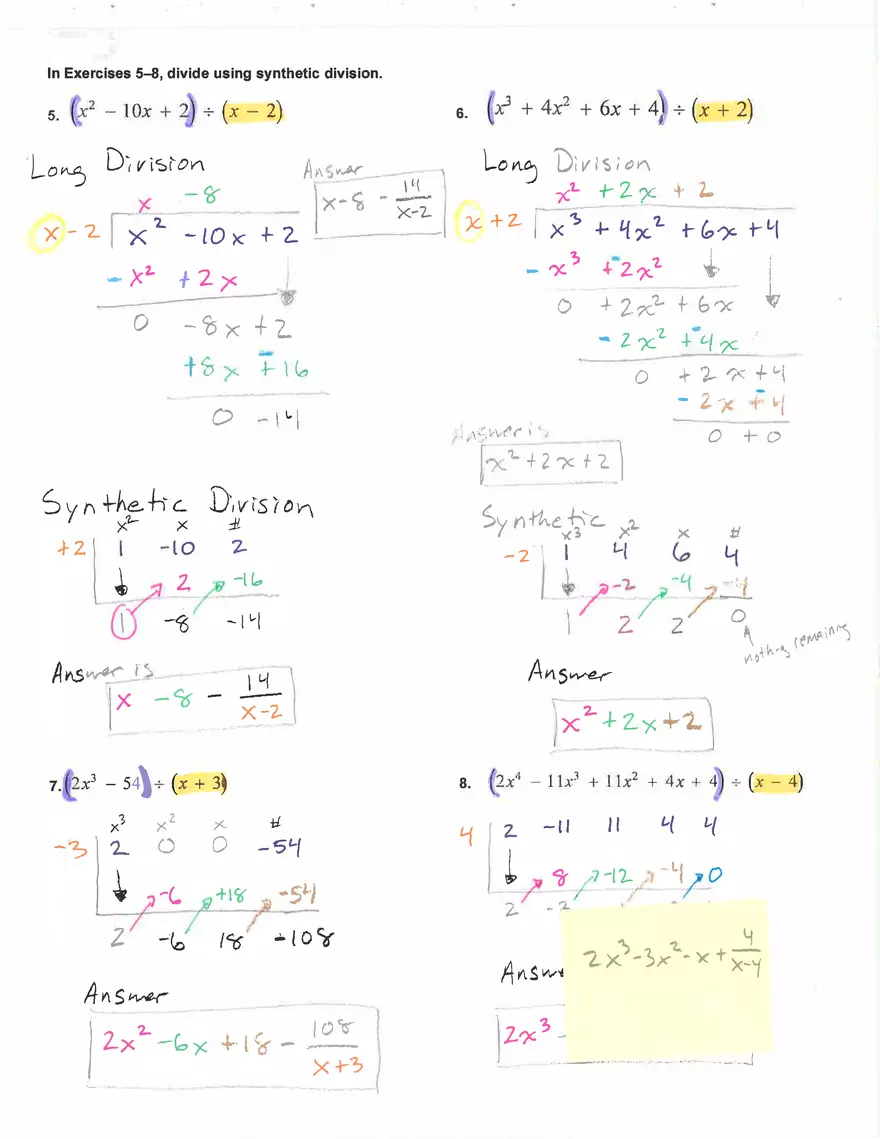 In Exercises 5–8, divide using synthetic division.
5. (x² − 10x + 2) ÷ (x − 2)
Long Division
Answer
x - 8 - 14/(x-2)
x -8
x - 2 | x² - 10x + 2
- x² + 2x
0 - 8x + 2
+8x + 16
0 - 14
Synthetic Division
x² x #
+2 | 1 -10 2
2 -16
1 -8 -14
Answer is
x - 8 - 14/(x-2)
6. (x³ + 4x² + 6x + 4) ÷ (x + 2)
Long Division
x² + 2x + 2
x + 2 | x³ + 4x² + 6x + 4
- x³ + 2x²
0 + 2x² + 6x
- 2x² + 4x
0 + 2x + 4
- 2x + 4
0 + 0
Answer is
x² + 2x + 2
Synthetic
x³ x² x #
-2 | 1 4 6 4
-2 -4 -4
1 2 2 0
nothing remaining
Answer
x² + 2x + 2
7. (2x³ − 54) ÷ (x + 3)
x³ x² x #
-3 | 2 0 0 -54
-6 +18 -54
2 -6 18 -108
Answer
2x² - 6x + 18 - 108/(x+3)
8. (2x⁴ − 11x³ + 11x² + 4x + 4) ÷ (x − 4)
4 | 2 -11 11 4 4
8 -12 -4 0
2
2x³ - 3x² - x + 4/(x-4)
2x³ -